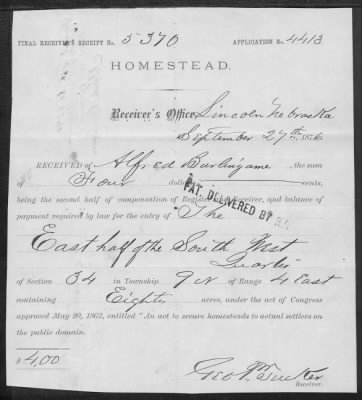 FINAL RECEIVER'S RECEIPT No. 5370 APPLICATION No. 4413
HOMESTEAD.
Receiver's Office, Lincoln Nebraska
September 27th 1876
RECEIVED of Alfred Burlingame the sum
of Four dollars cents,
being the second half of compensation of Register and Receiver, and balance of
payment required by law for the entry of The
PAT. DELIVERED BY
East half of the South West
Quarter
of Section 34 in Township 9 N of Range 4 East
containing Eighty acres, under the act of Congress
approved May 20, 1862, entitled "An act to secure homesteads to actual settlers on
the public domain.
$4.00
Geo. W. Tucker
Receiver.